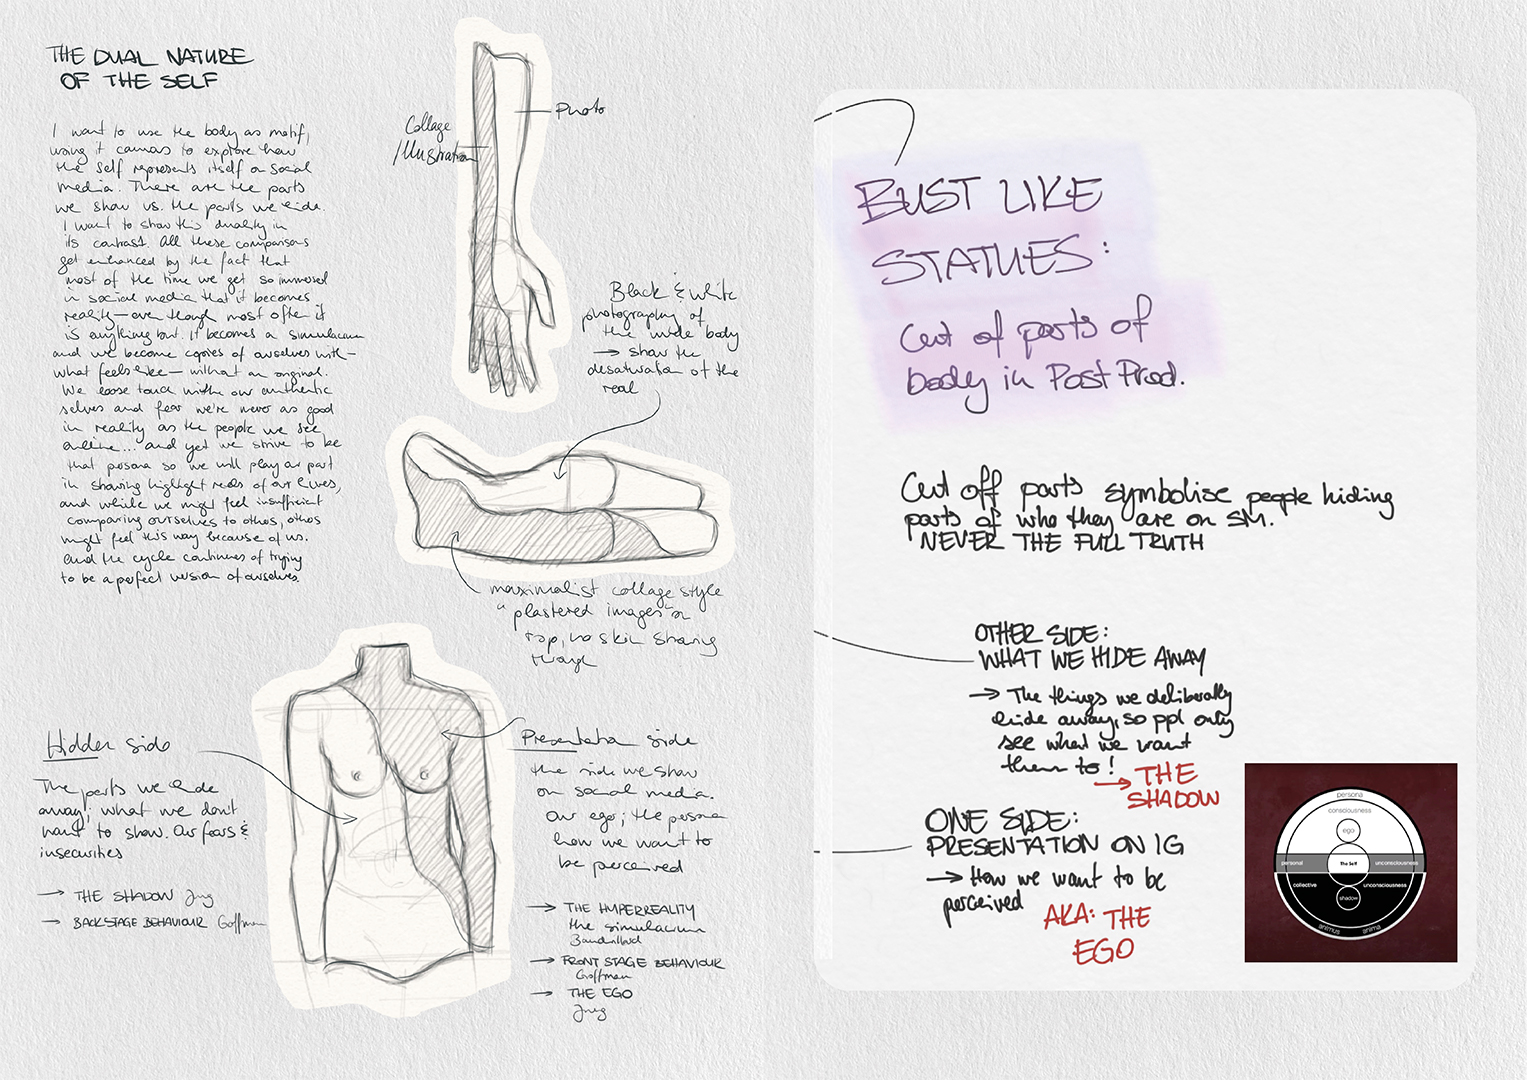 THE DUAL NATURE
OF THE SELF
I want to use the body as motif,
using it canvas to explore how
the self represents itself on social
media. There are the parts
we show vs. the parts we hide.
I want to show this duality in
its contrast. All these comparisons
get enhanced by the fact that
most of the time we get so immersed
in social media that it becomes
reality — even though most often it
is anything but. It becomes a simulacrum
and we become copies of ourselves with —
what feels like — without an original.
We loose touch with our authentic
selves and fear we're never as good
in reality as the people we see
online... and yet we strive to be
that persona so we will play our part
in showing highlight reels of our lives,
and while we might feel insufficient
comparing ourselves to others, others
might feel this way because of us.
and the cycle continues of trying
to be a perfect version of ourselves.
Collage
/Illustration
Photo
Black & white
photography of
the nude body
→ show the
desaturation of the
real
maximalist collage style
"plastered images" on
top, no skin showing
through
Hidden side
The parts we hide
away; what we don't
want to show. Our fears &
insecurities
→ THE SHADOW Jung
→ BACKSTAGE BEHAVIOUR Goffman
Presentation side
the side we show
on social media.
Our ego; the persona
how we want to
be perceived
→ THE HYPERREALITY
the simulacrum
Baudrillard
→ FRONT STAGE BEHAVIOUR
Goffman
→ THE EGO
Jung
BUST LIKE
STATUES:
Cut of parts of
body in Post Prod.
Cut off parts symbolise people hiding
parts of who they are on SM.
NEVER THE FULL TRUTH
OTHER SIDE:
WHAT WE HIDE AWAY
→ The things we deliberally
hide away, so ppl only
see what we want
them to!
→ THE
SHADOW
ONE SIDE:
PRESENTATION ON IG
→ How we want to be
perceived
AKA: THE
EGO
persona
consciousness
ego
personal
The Self
unconsciousness
collective
unconsciousness
shadow
animus
anima